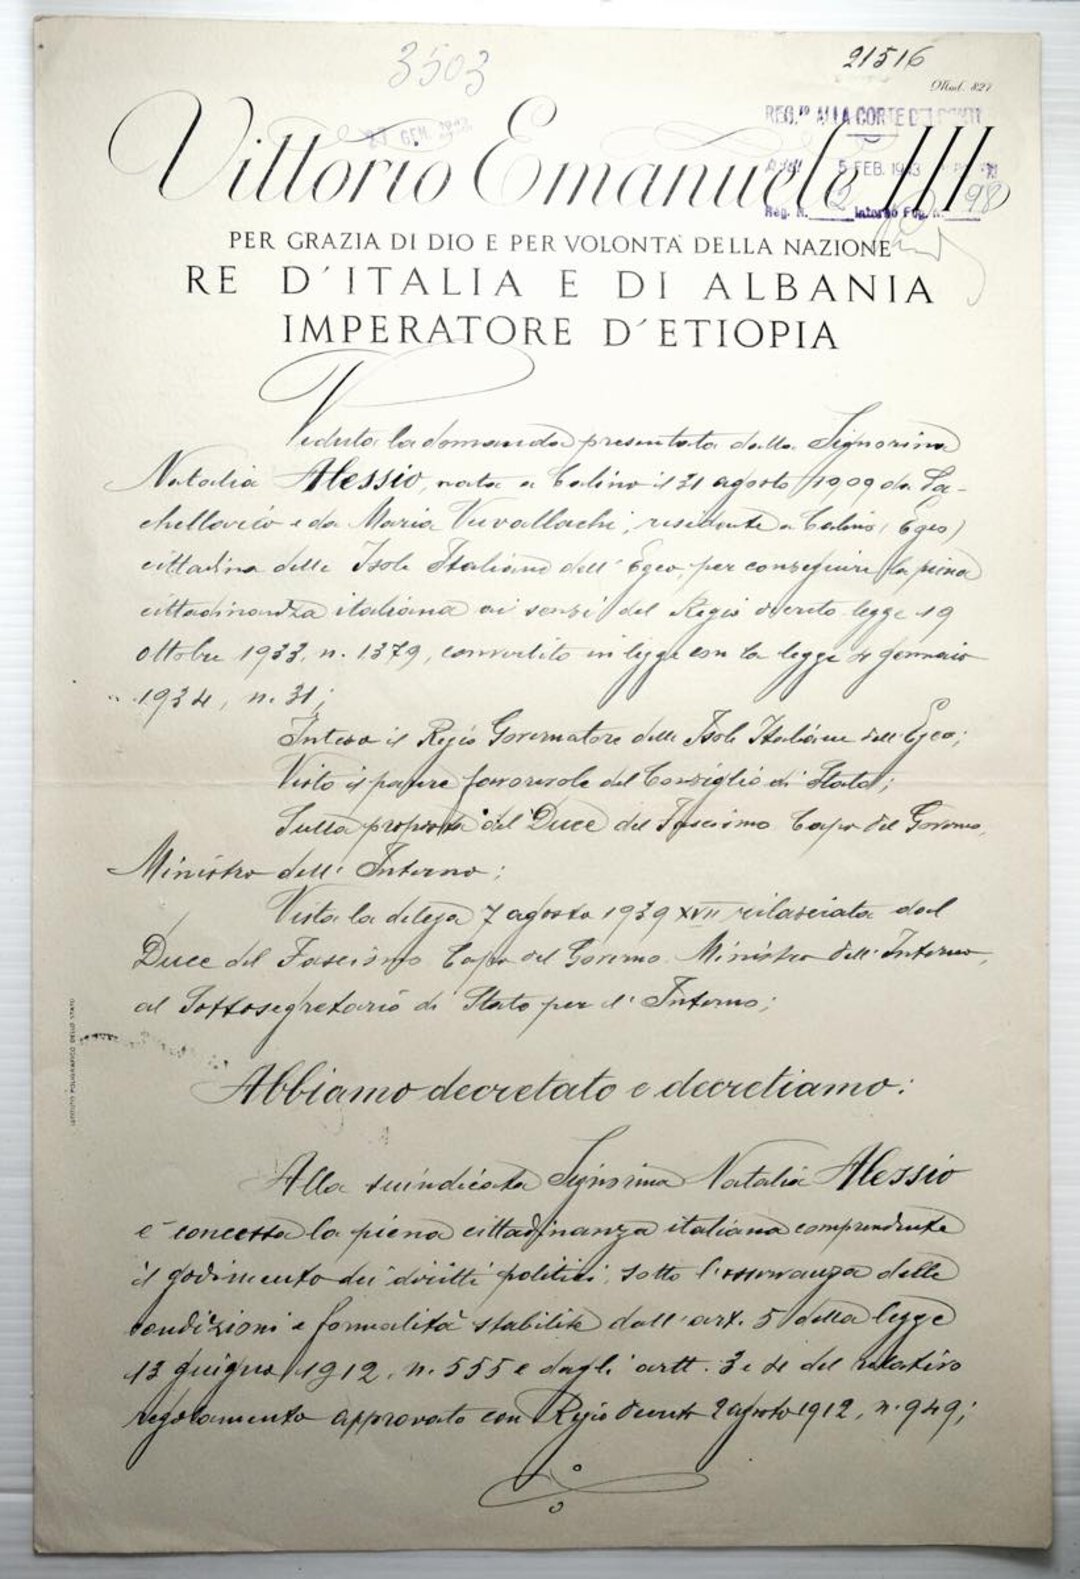 3503
21516
Mod. 827
REG.TO ALLA CORTE DEI CONTI
GEN.
Vittorio Emanuele III
5 FEB. 1943
Reg. N. 2 Interno Fog. n. 98
PER GRAZIA DI DIO E PER VOLONTA' DELLA NAZIONE
RE D'ITALIA E DI ALBANIA
IMPERATORE D'ETIOPIA
Veduta la domanda presentata dalla Signorina
Natalia Alessio, nata a Calino il 21 agosto 1909 da Sa-
chellario e da Maria Vuvallachi, residente a Calino (Egeo)
cittadina delle Isole Italiane dell'Egeo, per conseguire la piena
cittadinanza italiana ai sensi del Regio decreto legge 19
ottobre 1933, n. 1379, convertito in legge con la legge 4 gennaio
1934, n. 31;
Inteso il Regio Governatore delle Isole Italiane dell'Egeo;
Visto il parere favorevole del Consiglio di Stato;
Sulla proposta del Duce del Fascismo Capo del Governo,
Ministro dell'Interno;
Vista la delega 7 agosto 1939 XVII rilasciata dal
Duce del Fascismo Capo del Governo Ministro dell'Interno,
al Sottosegretario di Stato per l'Interno;
Abbiamo decretato e decretiamo:
Alla suindicata Signorina Natalia Alessio
è concessa la piena cittadinanza italiana comprendente
il godimento dei diritti politici, sotto l'osservanza delle
condizioni e formalità stabilite dall'art. 5 della legge
13 giugno 1912, n. 555 e dagli artt. 3 e 4 del relativo
regolamento approvato con Regio decreto 2 agosto 1912, n. 949;
ISTITUTO POLIGRAFICO DELLO STATO